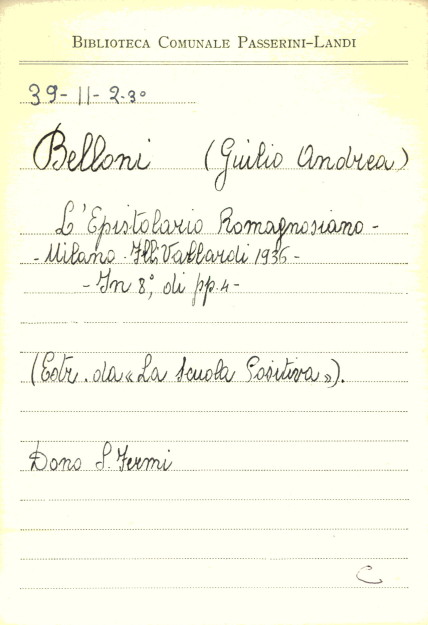 BIBLIOTECA COMUNALE PASSERINI-LANDI
39-11-2-3°
Belloni (Giulio Andrea)
L'Epistolario Romagnosiano-
-Milano-Flli Vallardi 1936-
-In 8°, di pp. 4-
(Estr. da «La Scuola Positiva»).
Dono S. Fermi
C